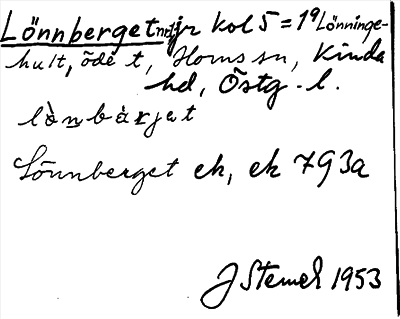 Lönnberget nr 1 jr kol 5 = 1⁹ Lönninge-
hult, öde t, Horns sn, Kinda
hd, Östg. l.
lònbàrjet
Lönnberget ek, ek 7G 3a
J Stemel 1953